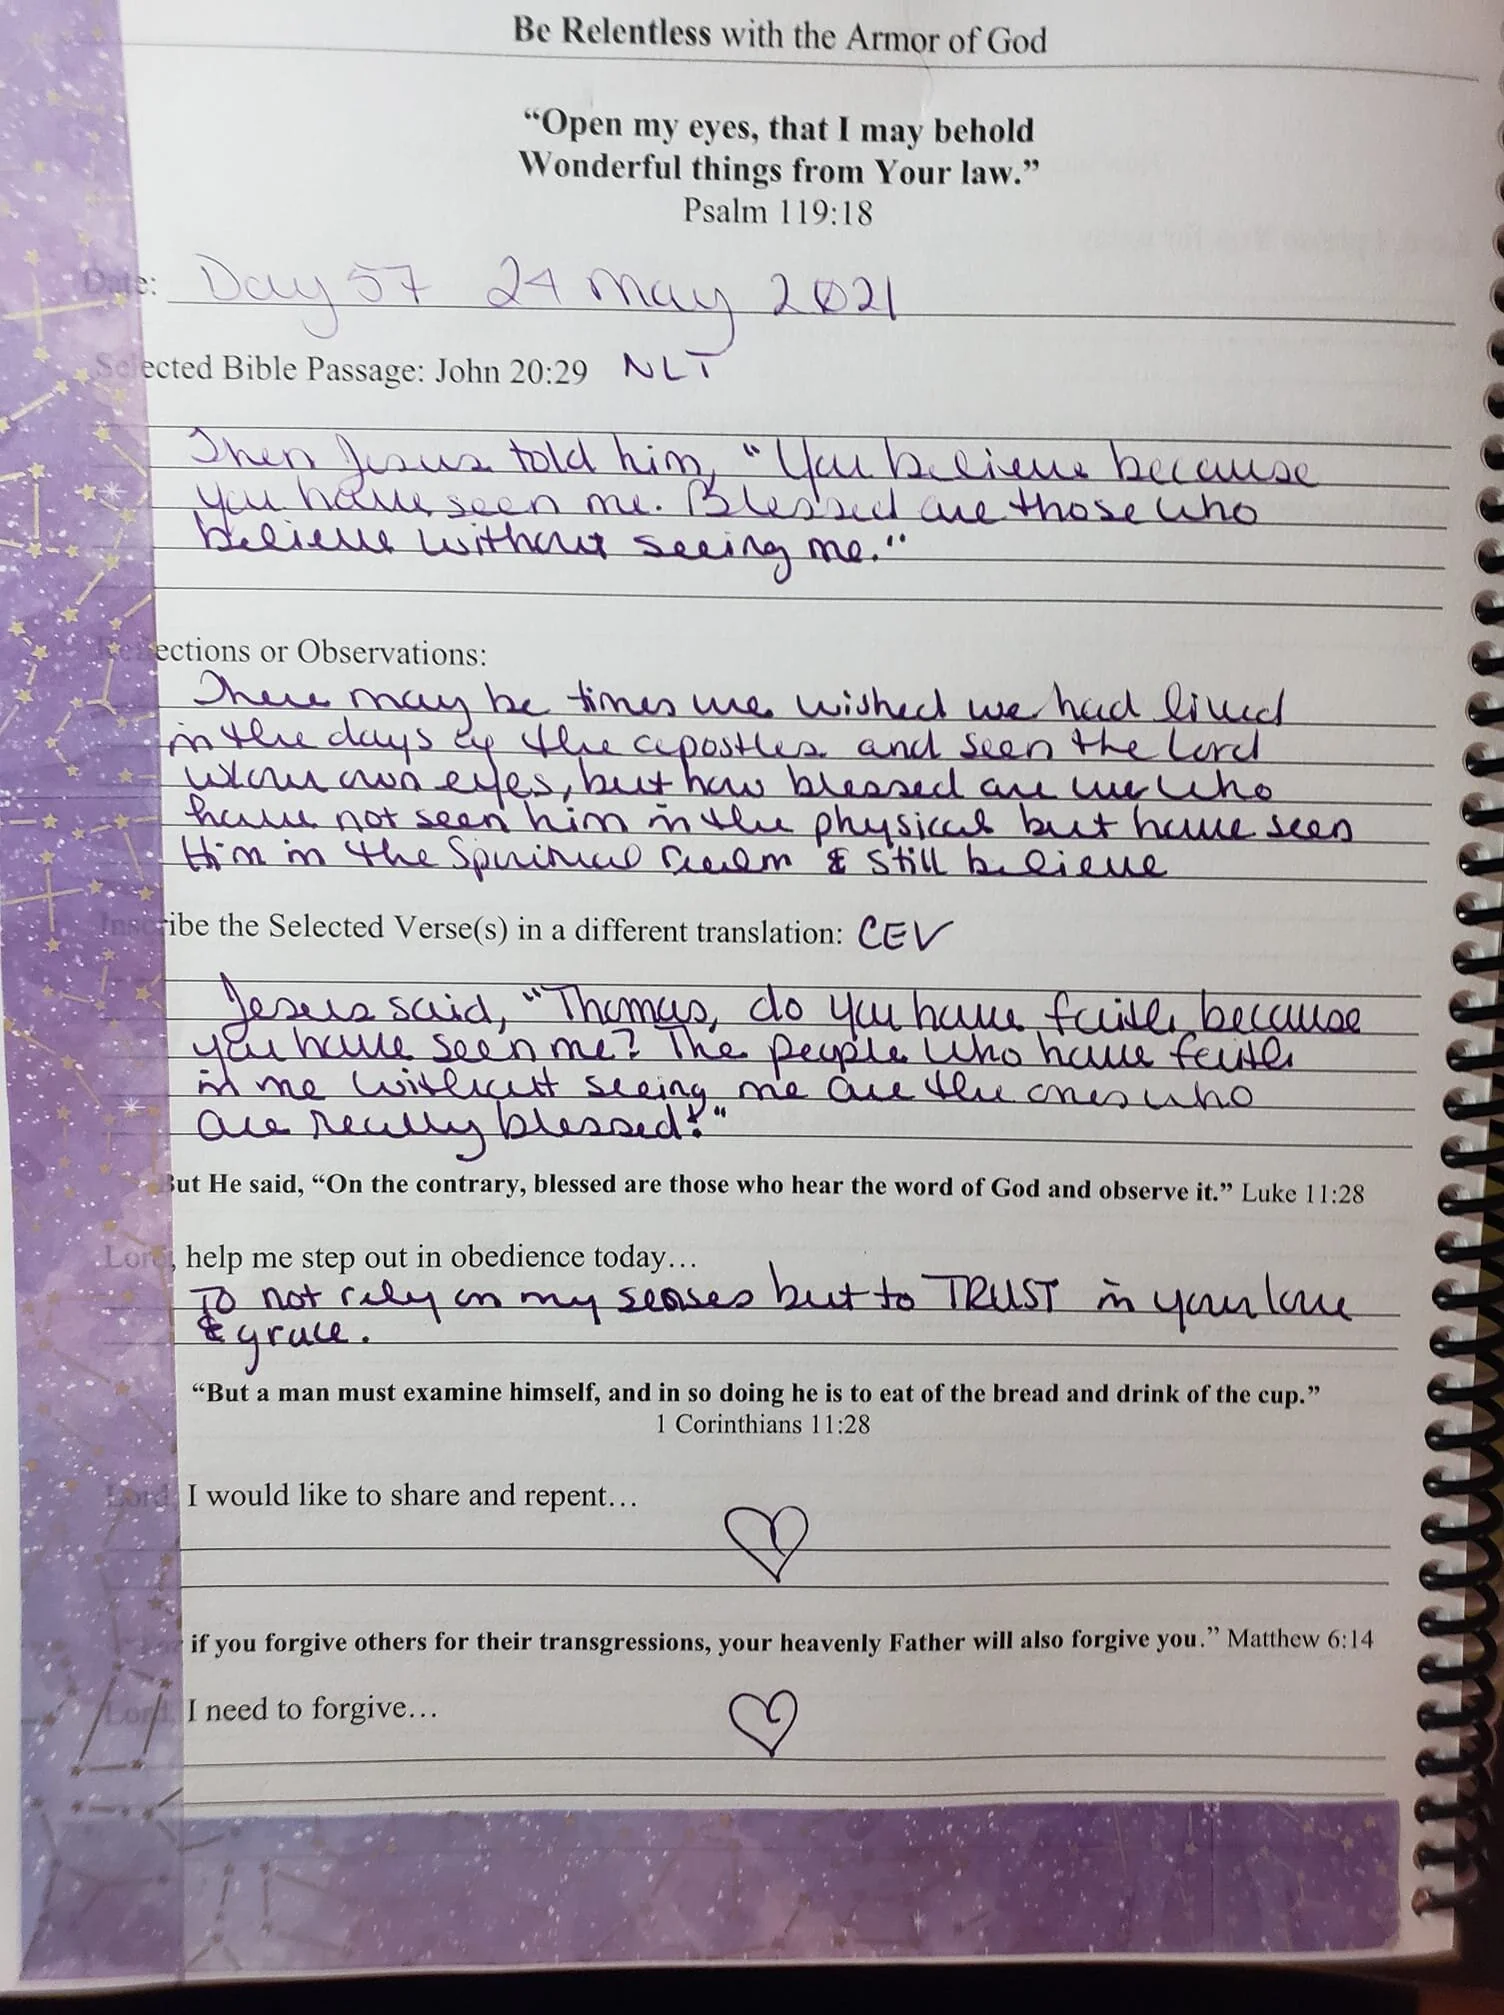 Be Relentless with the Armor of God
“Open my eyes, that I may behold
Wonderful things from Your law.”
Psalm 119:18
Date: Day 57 24 May 2021
Selected Bible Passage: John 20:29 NLT
Then Jesus told him, "You believe because
you have seen me. Blessed are those who
believe without seeing me."
Reflections or Observations:
There may be times we wished we had lived
in the days of the apostles and seen the Lord
w/our own eyes, but how blessed are we who
have not seen him in the physical but have seen
Him in the Spiritual realm & still believe
Inscribe the Selected Verse(s) in a different translation: CEV
Jesus said, "Thomas, do you have faith because
you have seen me? The people who have faith
in me without seeing me are the ones who
are really blessed!"
But He said, “On the contrary, blessed are those who hear the word of God and observe it.” Luke 11:28
Lord, help me step out in obedience today…
TO not rely on my senses but to TRUST in your love
& grace.
“But a man must examine himself, and in so doing he is to eat of the bread and drink of the cup.”
1 Corinthians 11:28
Lord, I would like to share and repent…
if you forgive others for their transgressions, your heavenly Father will also forgive you.” Matthew 6:14
Lord, I need to forgive…